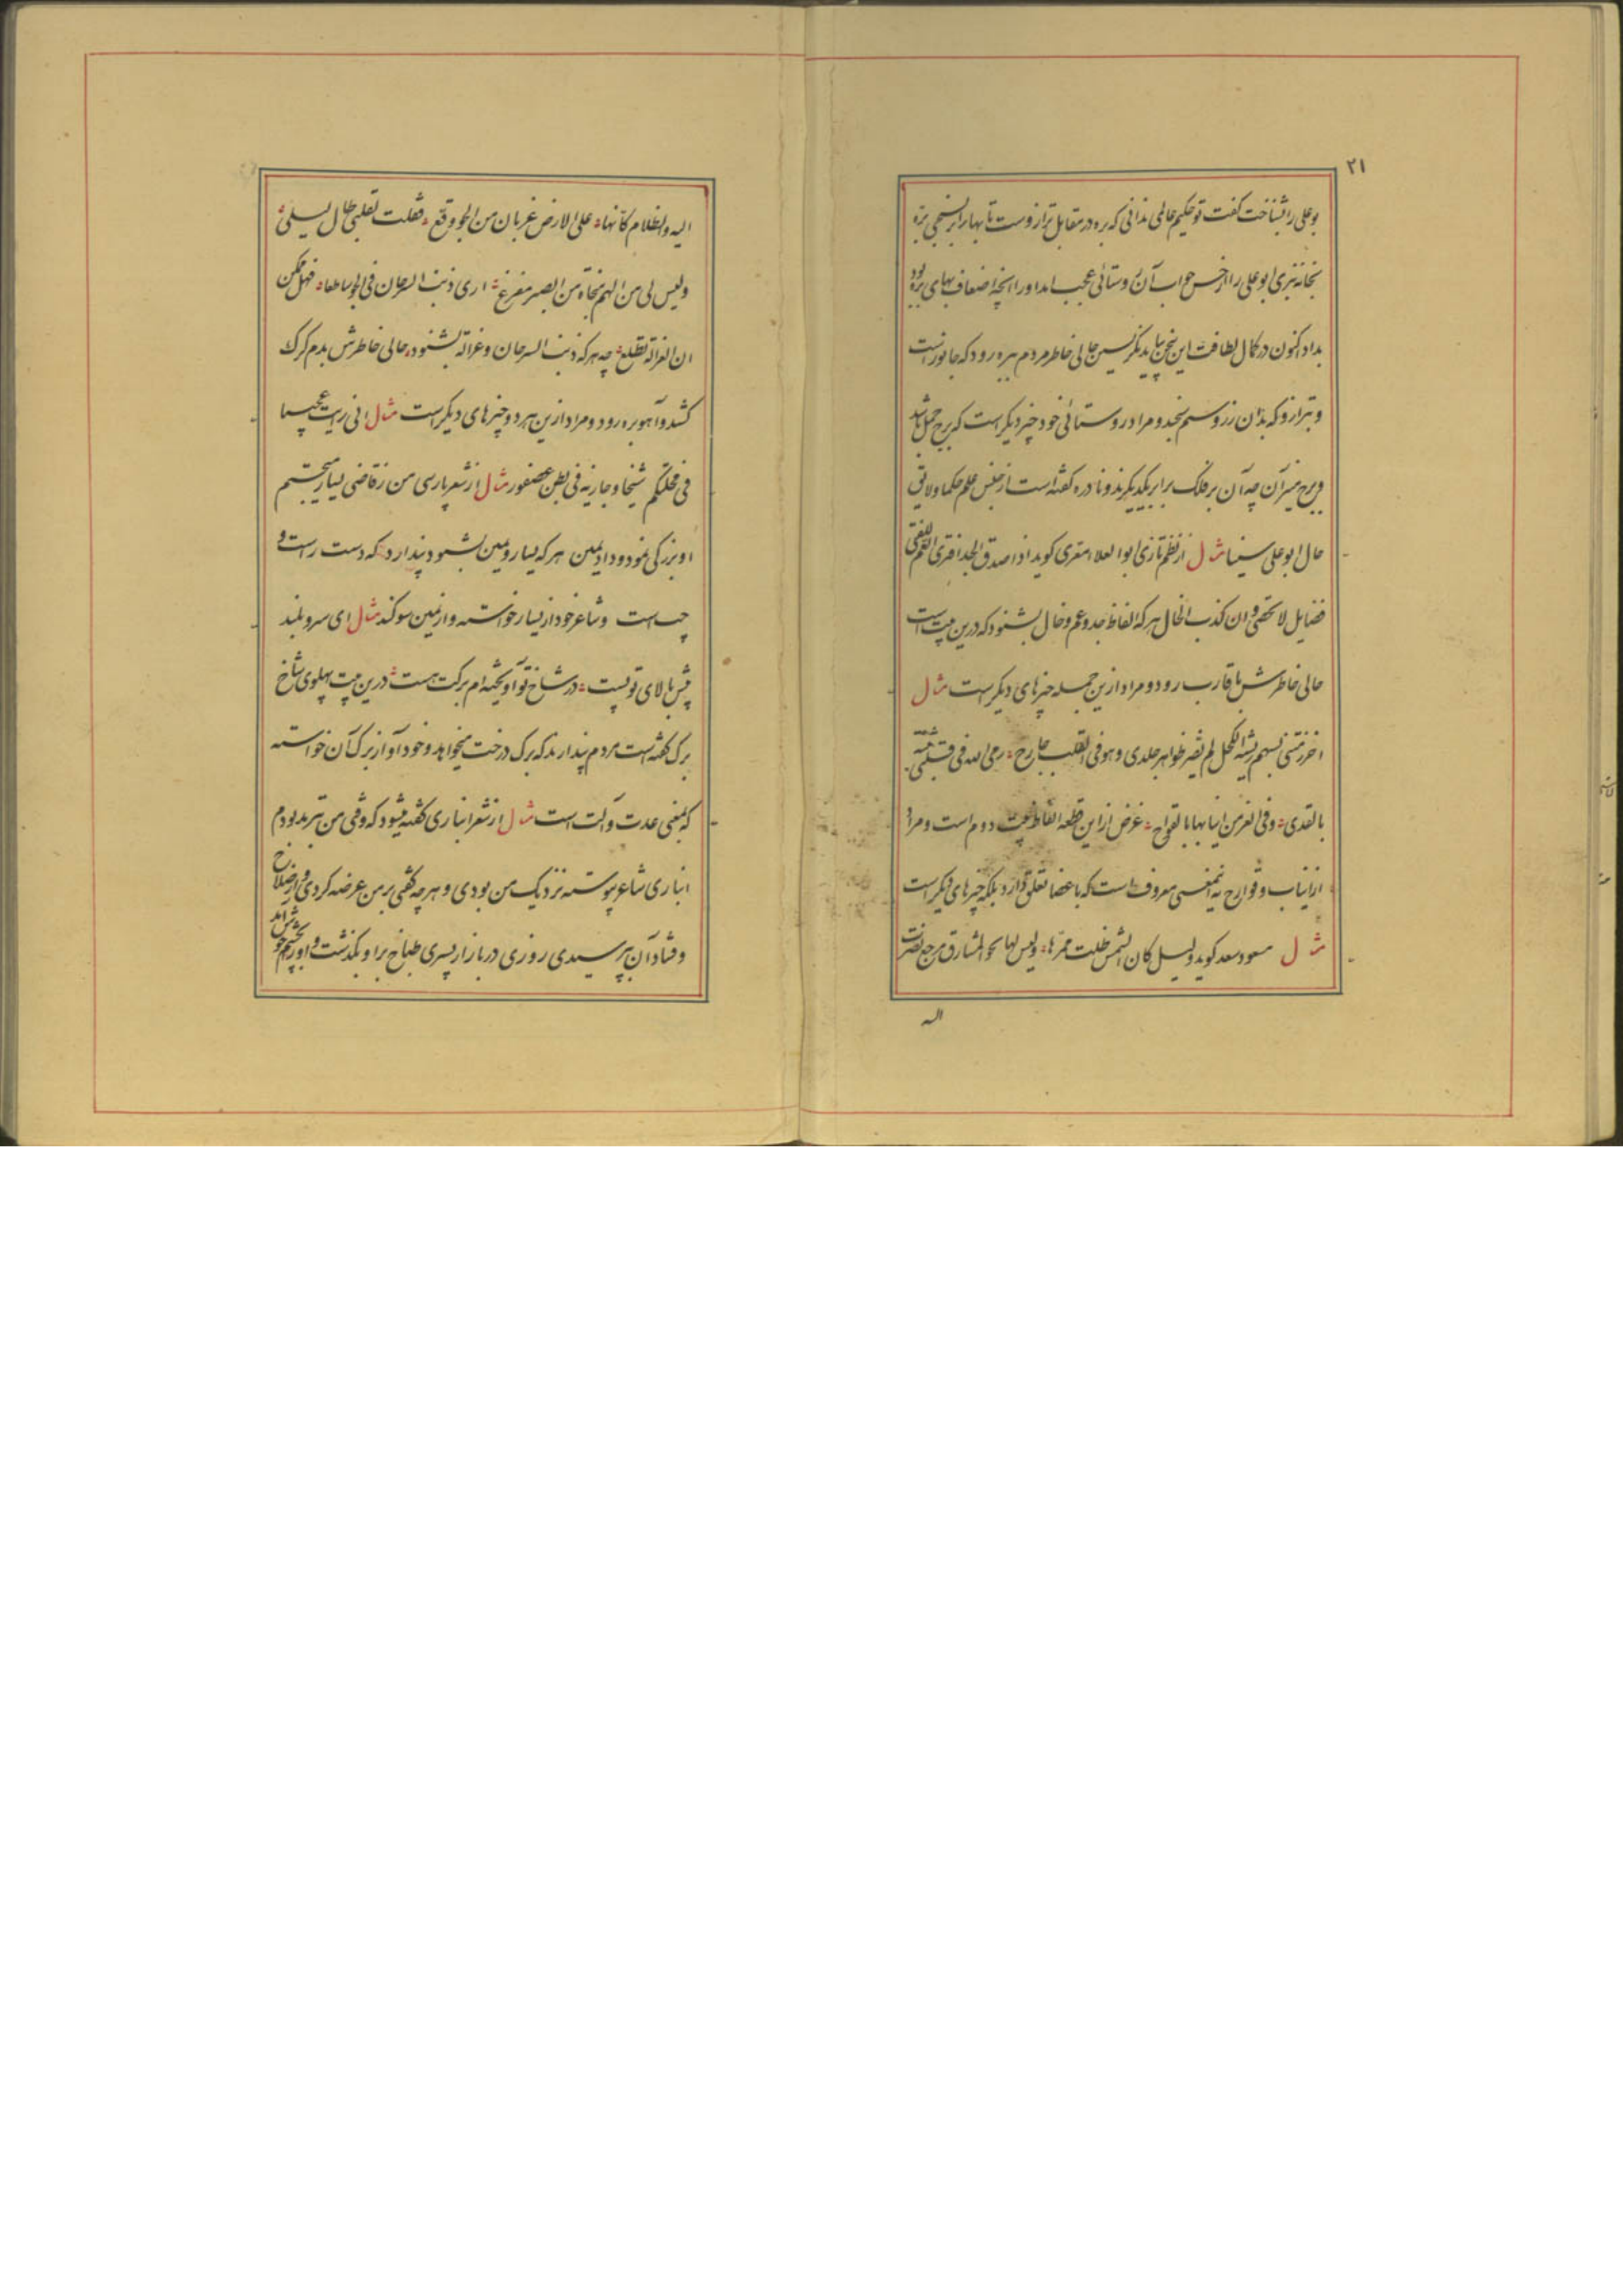 ۲۱
بوعلی را بشناخت گفت تو حکیم عالمی ندانی که بره در مقابل ترازوست تا بها برابر نسنجی بره
بخانه نبری ابوعلی را از حسن جواب آن روستائی عجب امد اورا بخچه اضعاف بهای بره بود
بداد اکنون در کمال لطافت این سخن بباید نگریستن حالی خاطر مردم ببره رود که جانورست
و بترازو که بدان زر و سیم سنجند و مراد روستائی خود چیز دیگر است که برج حمل باشد
و برج میزان چه آن بر فلک برابر یکدیگرند و نادره گفته است از جنس علم حکما و لایق
حال ابوعلی سینا مثال از نظم تازی ابوا لعلاء معری گوید اذا صدق الجد افتری العم للفتی
فضایل لا تخفی و ان کذب الخال هر که الفاظ جد و عم و خال بشنود که درین بیت است
حالی خاطرش باقارب رود و مراد ازین جمله چیزهای دیگر است مثال
بسهم ریشه الکحل لم یضر ظواهر جلدی و هو فی القلب جارح رمی الله فی
بالقذی و فی الغر من انیابها بالقوادح غرض از این قطعه الفاظ بیت دوم است و مراد
از انیاب و قوادح نه آنمعنی معروف است که باعضا تعلق دارد بلکه چیزهای دیگر است
مثال مسعود سعد گوید ولیل کان الشمس ضلت ممرها ولیس لها نحو المشارق مرجع نظرت
الیه
الیه والظلام کانها علی الارض غربان من الجو وقع فقلت لقلبی طال لیلی
ولیس لی من الهم منجاة من الصبر مفزع اری ذنب السرحان فی الجو ساطعا فهل ممکن
ان الغزالة تطلع چه هر که ذنب السرحان و غزالة بشنود حالی خاطرش بدم گرگ
کشد و آهوبره رود و مراد ازین هر دو چیزهای دیگر است مثال انی رایت عجیبا
فی محلتکم شیخا و جاریة فی بطن عصفور مثال از شعر پارسی من ز قاضی یسار میجستم
او بزرگی نمود و داد یمین هر که یسار و یمین بشنود پندارد که دست راست و
چپ است و شاعر خود از یسار خواسته و از یمین سوگند مثال ای سرو بلند
پیش بالای تو پست در شاخ تو آویخته ام برگت هست درین بیت پهلوی شاخ
برگ گفته است مردم پندارند که برگ درخت میخواهد و خود او از برگ آن خواسته
که بمعنی عدت و آلت است مثال از شعر انباری گفته میشود که وقتی من بترمد بودم
انباری شاعر پیوسته نزدیک من بودی و هر چه گفتی بر من عرضه کردی و از صلاح
و فساد آن بپرسیدی روزی در بازار پسری طباخ براو بگذشت و او را بچشم خوش آمد